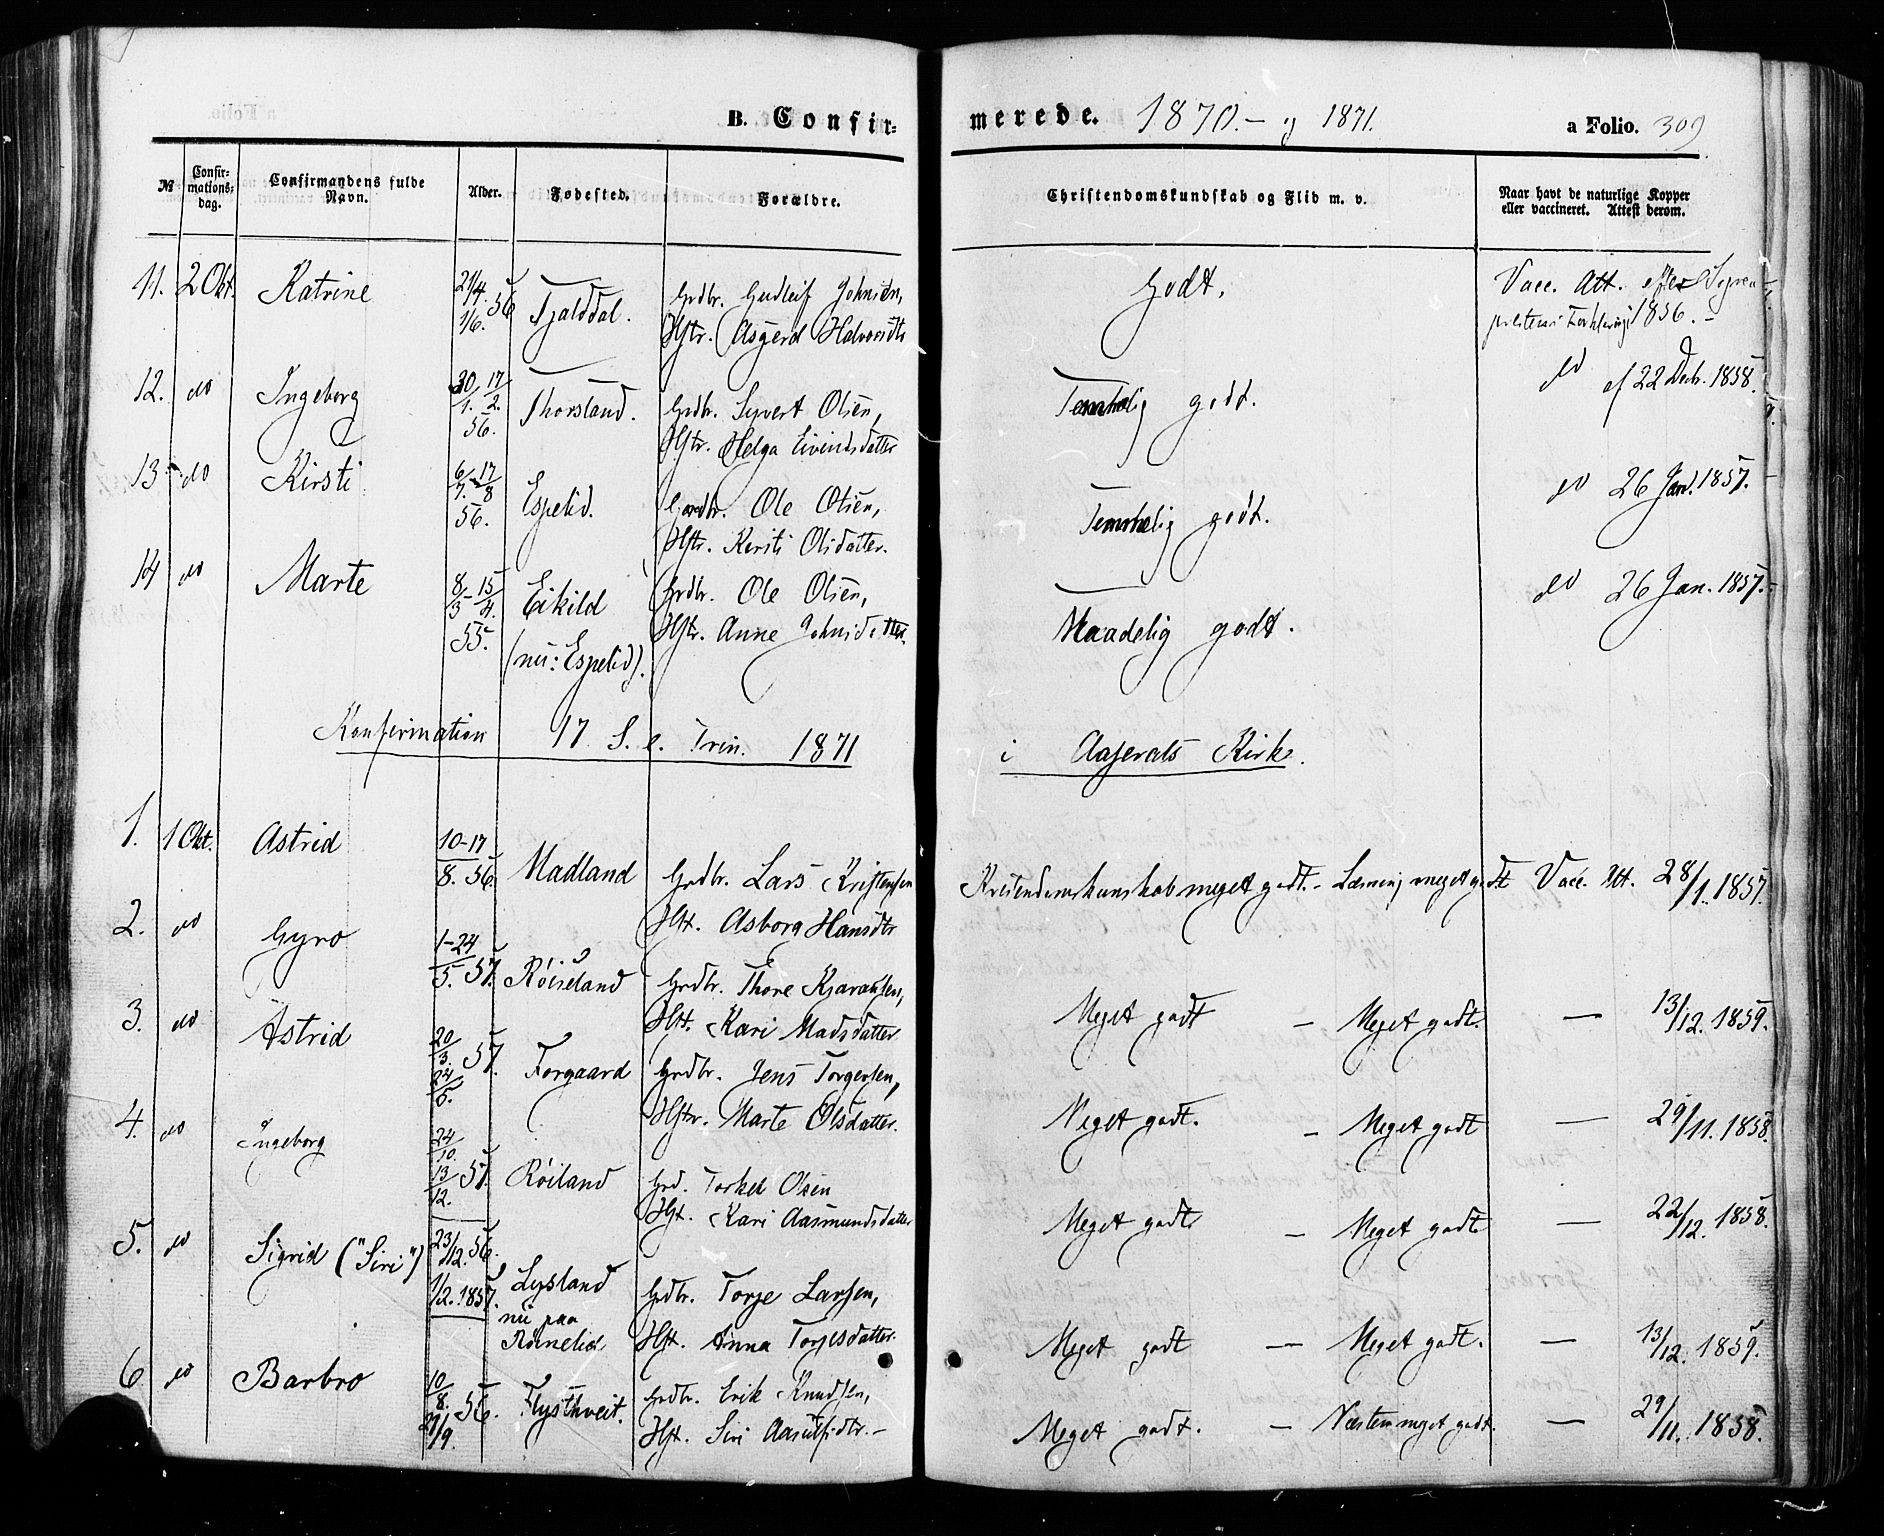 B. Confir-
merede. 1870.- og 1871.
a Folio. 309
No
Confir-mations-dag.
Confirmandens fulde Navn.
Alder.
Fødested.
Forældre.
Christendomskundskab og Flid m. v.
Naar havt de naturlige Kopper eller vaccineret. Attest derom.
11. 2 Okt. Katrine 21/4. 1/6. 56 Tjalddal. Grdbr. Gudleif Johnsen, Hstr. Asgerd Halvorsdtr Godt. Vacc. Att. efter 1856.
12. do Ingeborg 30/1. 17/2. 56. Thorsland. Grdbr. Syvert Olsen, Hstr. Helga Eivindsdatter Temmelig godt. do af 22 Decb. 1858.
13 do Kirsti 6/7. - 17/8 56. Espelid. Gaardbr. Ole Olsen, Hstr. Kersti Olsdatter. Temmelig godt. do 26 Jan. 1857.
14 do Marte 8/3 - 15/4. 55. Eikild (nu: Espelid). Grdbr. Ole Olsen, Hstr. Anne Johnsdatter. Maadelig godt. do 26 Jan. 1857.
Konfirmation 17 S. e. Trin. 1871 i Aaserals Kirke.
1. 1 Okt. Astrid 10-17/8. 56. Madland Grdbr. Lars Kristensen Hst. Asborg Hansdtr Kristendomskunskab meget godt. - Læsning meget godt Vacc. Att. 28/1. 1857.
2. do Gyro 1-24/5. 57. Røiseland Grdbr. Thore Kjaransen, Hst. Kari Madsdatter Meget godt - Meget godt. — 13/12. 1859.
3. do Astrid 20/3. 24/5. 57. Forgaard Grdbr. Jens Torgersen, Hstr. Marte Olsdatter. Meget godt. - Meget godt — 29/11. 1858.
4. do Ingeborg 24/10. 13/12. 57. Røiland Grd. Torkel Olsen Hst. Kari Aasmundsdatter Meget godt - Meget godt — 22/12. 1858.
5. do Sigrid ("Siri") 23/12. 56. 1/2. 1857. Lysland nu paa Grdbr. Torje Larsen, Hst. Anna Torjesdatter. Meget godt — Meget godt. — 13/12. 1859.
6 do Barbro 10/8. 21/9. 56. Flysthveit. Grdbr. Erik Knudsen, Hst. Siri Aasulfsdtr. - Meget godt. - Næsten meget godt. — 29/11. 1858.